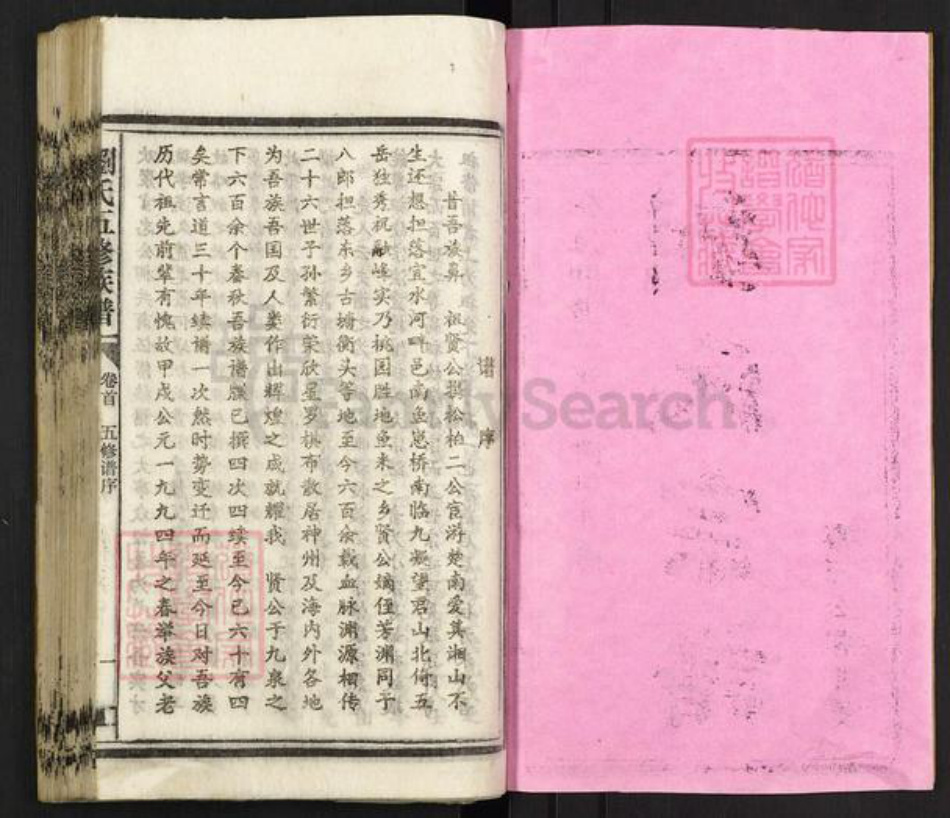 谱序
昔吾族鼻 祖贤公撰松柏二公宦游楚南爱其湘山不
生还想担落宜水河畔邑南鱼崽桥南临九嶷望君山北倚五
岳独秀祝融峰实乃桃园胜地鱼米之乡贤公嫡侄芳渊同子
八郎担落东乡古塘衡头等地至今六百余载血脉渊源相传
二十六世子孙繁衍荣欣星罗棋布散居神州及海内外各地
为吾族吾国及人类作出辉煌之成就耀我 贤公于九泉之
下六百余个春秋吾族谱牒已撰四次四续至今已六十有四
矣常言道三十年续谱一次然时势变迁而延至今日对吾族
历代祖先前辈有愧故甲戌公元一九九四年之春举族父老
氏五修族谱
卷首 五修谱序
一
FamilySearch